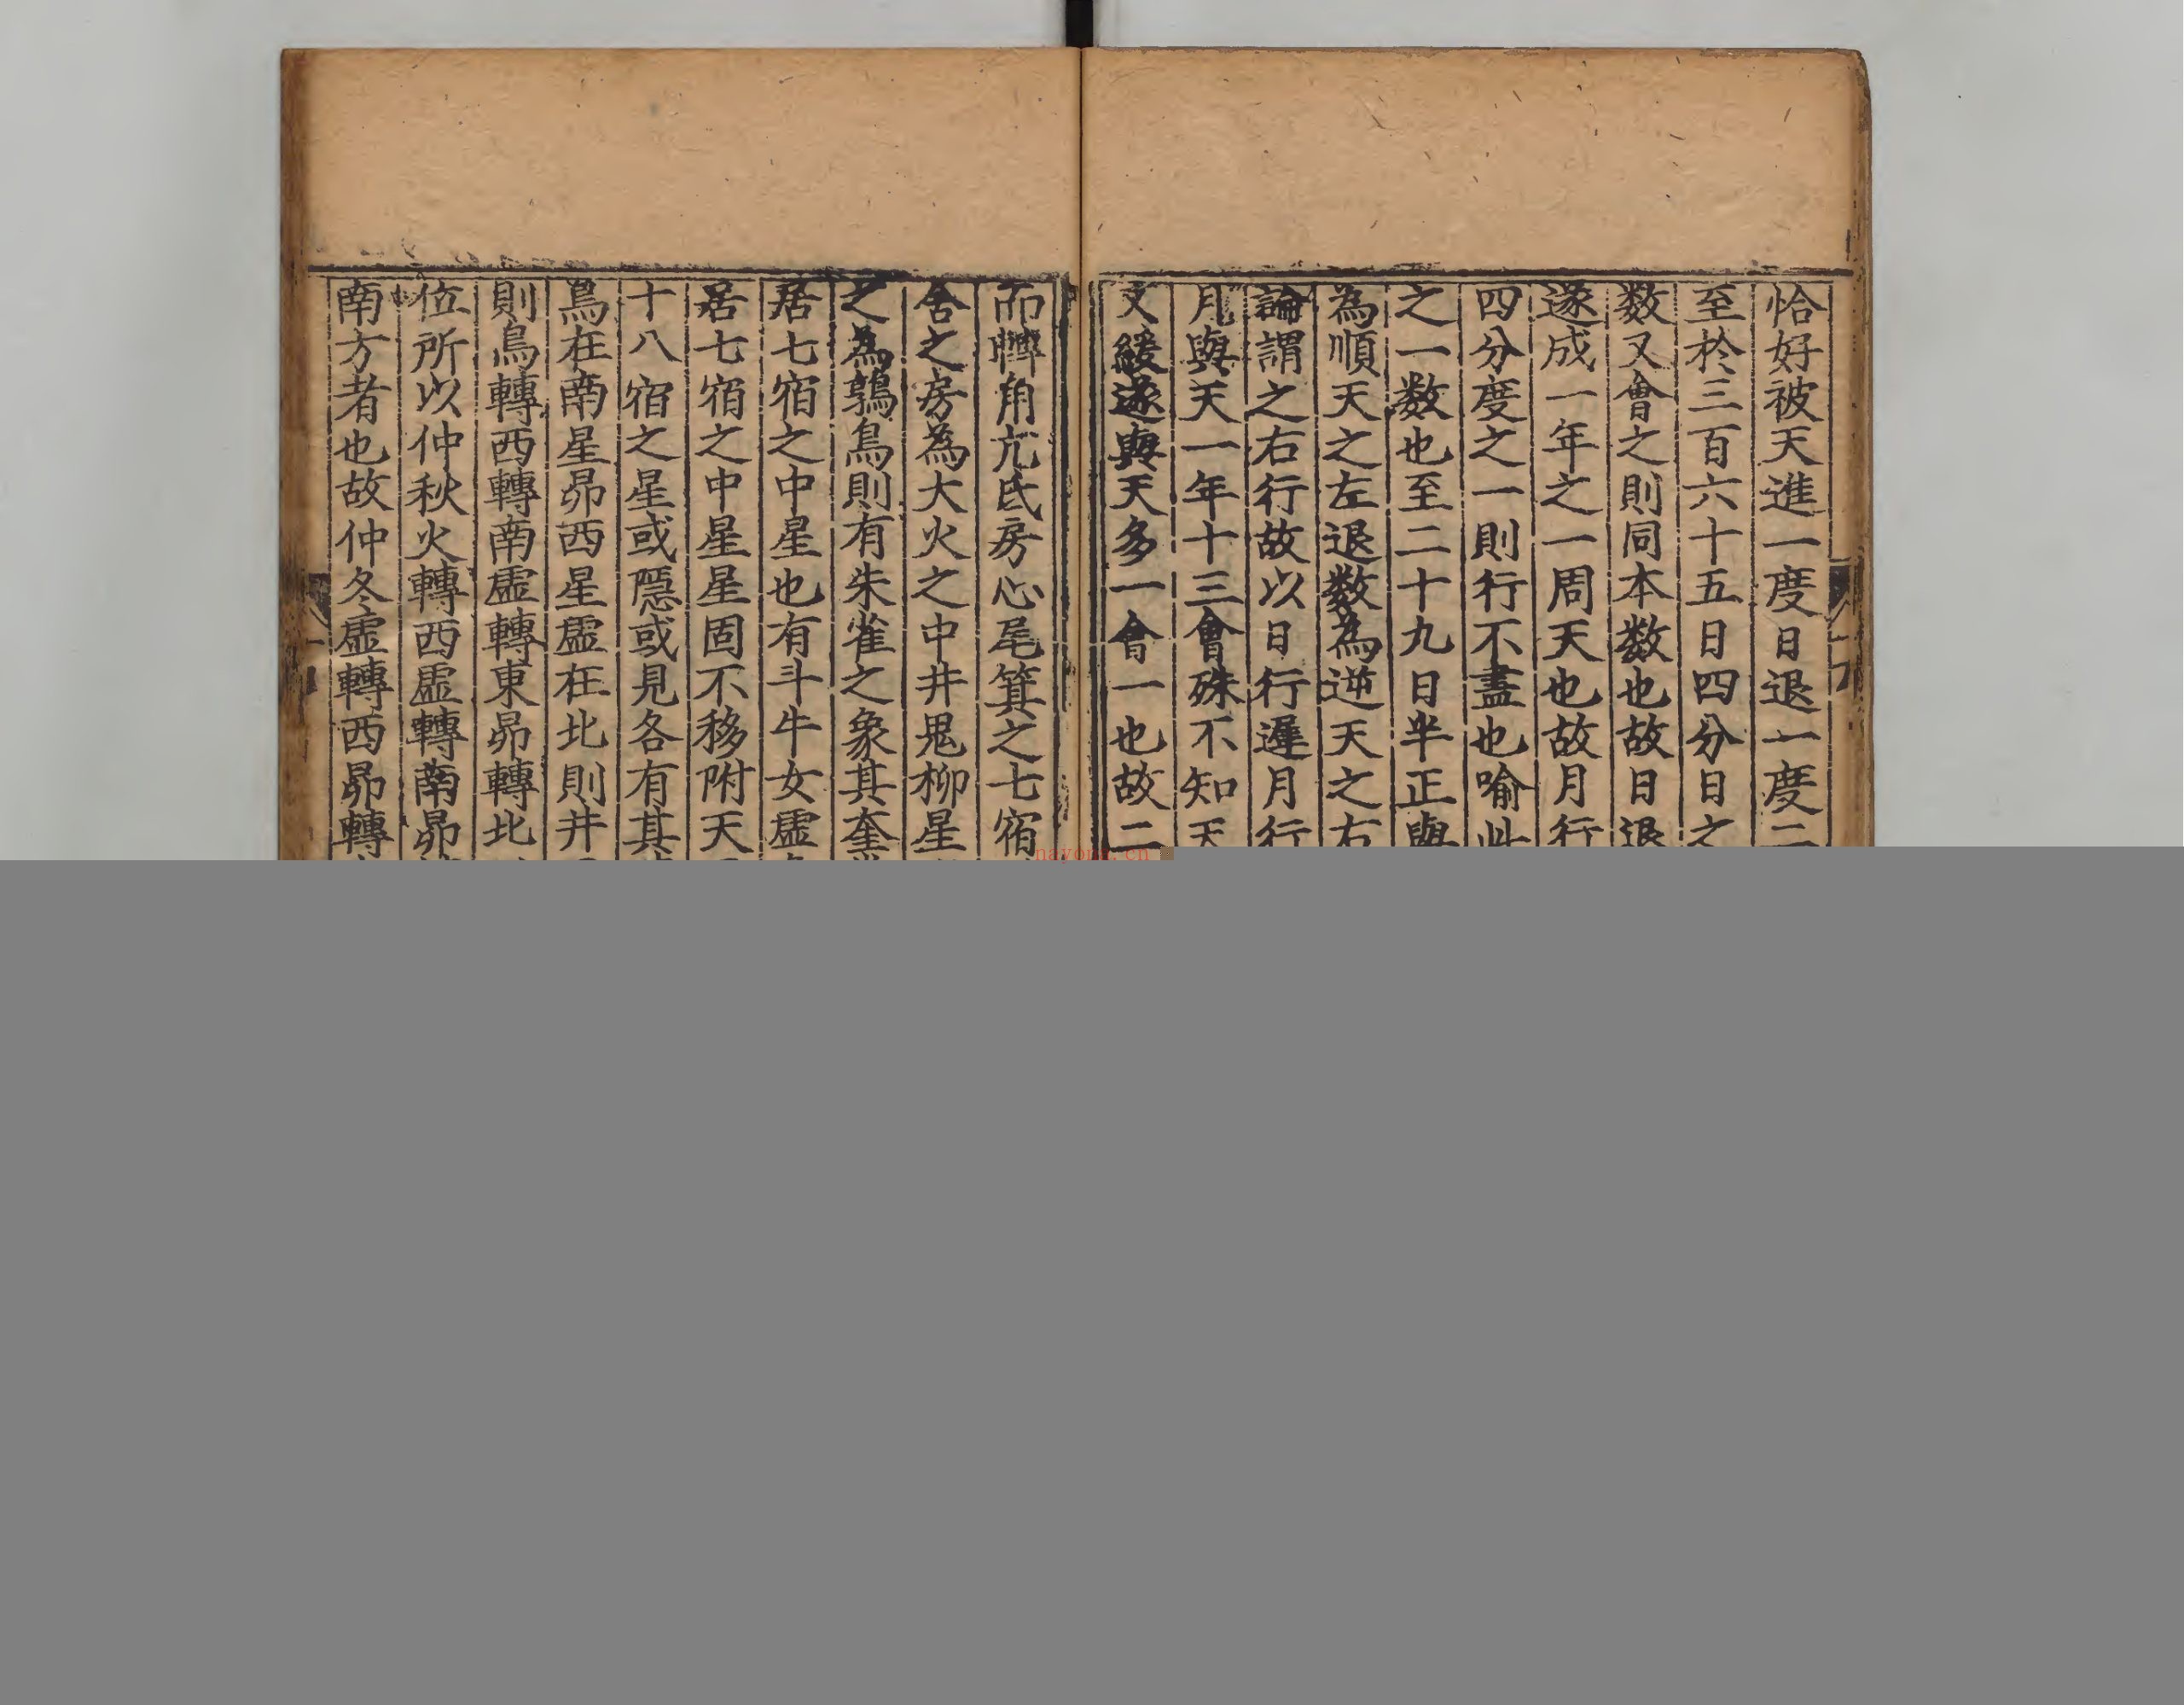 恰好被天進一度日退一度二
至於三百六十五日四分日之
数又會之則同本数也故日退
遂成一年之一周天也故月行
四分度之一則行不盡也喻此
之一数也至二十九日半正與
為順天之左退数為逆天之右
論謂之右行故以日行遲月行
月與天一年十三會殊不知天
又緩遂與天多一會一也故二
而轉角亢氐房心尾箕之七宿
舍之房為大火之中井鬼柳星
之為鶉鳥則有朱雀之象其奎
居七宿之中星也有斗牛女虛
居七宿之中星星固不移附天
十八宿之星或隱或見各有其
鳥在南星昴西星虛在北則井
則鳥轉西轉南虛轉東昴轉北
位所以仲秋火轉西虛轉南昴
南方者也故仲冬虛轉西昴轉